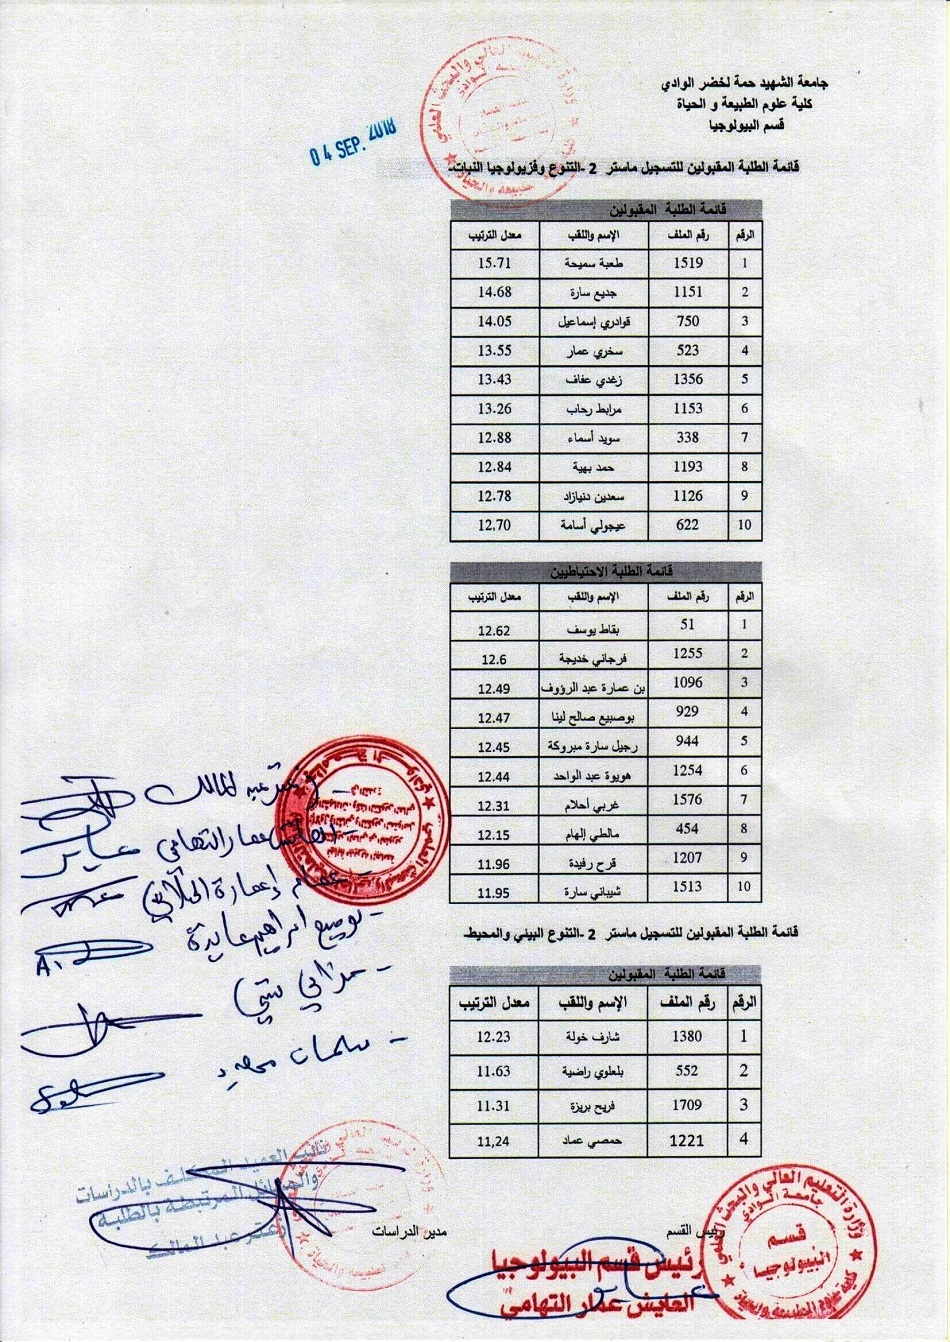 جامعة الشهيد حمة لخضر الوادي
كلية علوم الطبيعة و الحياة
قسم البيولوجيا
04 SEP. 2018
قائمة الطلبة المقبولين للتسجيل ماستر 2 -التنوع وفزيولوجيا النبات-
قائمة الطلبة المقبولين
الرقم رقم الملف الإسم واللقب معدل الترتيب
1 1519 طعبة سميحة 15.71
2 1151 جديع سارة 14.68
3 750 قوادري إسماعيل 14.05
4 523 سخري عمار 13.55
5 1356 زغدي عفاف 13.43
6 1153 مرابط رحاب 13.26
7 338 سويد أسماء 12.88
8 1193 حمد بهية 12.84
9 1126 سعدين دنيازاد 12.78
10 622 عيجولي أسامة 12,70
قائمة الطلبة الاحتياطيين
الرقم رقم الملف الإسم واللقب معدل الترتيب
1 51 بقاط يوسف 12.62
2 1255 فرجاني خديجة 12.6
3 1096 بن عمارة عبد الرؤوف 12.49
4 929 بوصبيع صالح لينا 12.47
5 944 رجيل سارة مبروكة 12.45
6 1254 هويوة عبد الواحد 12.44
7 1576 غربي أحلام 12.31
8 454 مالطي إلهام 12.15
9 1207 قرح رفيدة 11.96
10 1513 شيباني سارة 11.95
قائمة الطلبة المقبولين للتسجيل ماستر 2 -التنوع البيئي والمحيط-
قائمة الطلبة المقبولين
الرقم رقم الملف الإسم واللقب معدل الترتيب
1 1380 شارف خولة 12.23
2 552 بلعلوي راضية 11.63
3 1709 فريح بريزة 11.31
4 1221 حمصي عماد 11,24
عبد المالك
عمار التهامي
رئيس القسم
مدير الدراسات
نائب العميد المكلف بالدراسات
والمسائل المرتبطة بالطلبة
زعتر عبد المالك
رئيس قسم البيولوجيا
العايش عمار التهامي
وزارة التعليم العالي والبحث العلمي
جامعة الوادي
قسم
البيولوجيا
كلية علوم الطبيعة والحياة